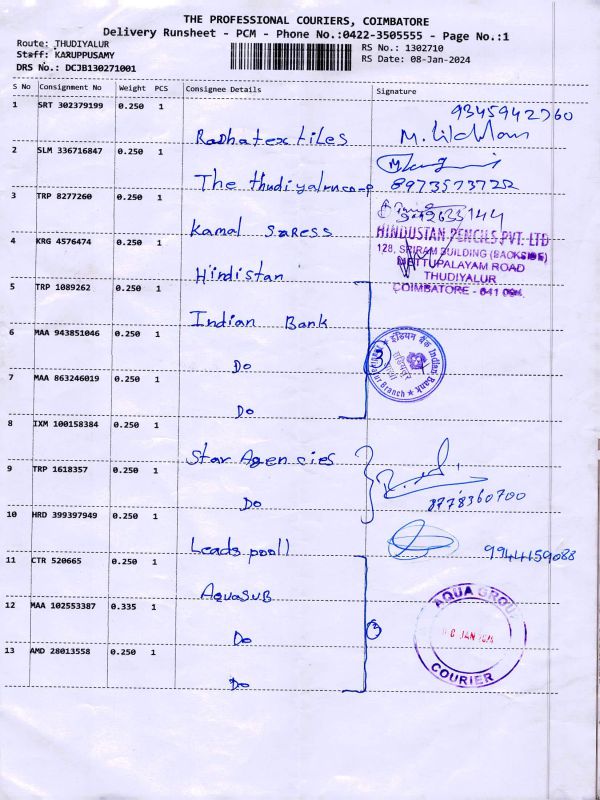 THE PROFESSIONAL COURIERS, COIMBATORE
Delivery Runsheet - PCM - Phone No.:0422-3505555 - Page No.:1
Route: THUDIYALUR
Staff: KARUPPUSAMY
DRS No.: DCJB130271001
RS No.: 1302710
RS Date: 08-Jan-2024
S No Consignment No Weight PCS Consignee Details Signature
1 SRT 302379199 0.250 1 Radhatextiles
9345942760
2 SLM 336716847 0.250 1 The thudiyalrucomp
8973573722
3 TRP 8277260 0.250 1 Kamal saress
4 KRG 4576474 0.250 1 Hindistan
HINDUSTAN PENCILS PVT. LTD
128, SRIRAM BUILDING (BACKSIDE)
METTUPALAYAM ROAD
THUDIYALUR
COIMBATORE - 641 034.
5 TRP 1089262 0.250 1 Indian Bank
6 MAA 943851046 0.250 1 Do
7 MAA 863246019 0.250 1 Do
3
इंडियन बैंक Indian Bank
Branch
8 IXM 100158384 0.250 1 Star Agencies
9 TRP 1618357 0.250 1 Do
8778360700
10 HRD 399397949 0.250 1 Leads pooll
9944159088
11 CTR 520665 0.250 1 AquasuB
12 MAA 102553387 0.335 1 Do
13 AMD 28013558 0.250 1 Do
3
AQUA GROUP
JAN
COURIER